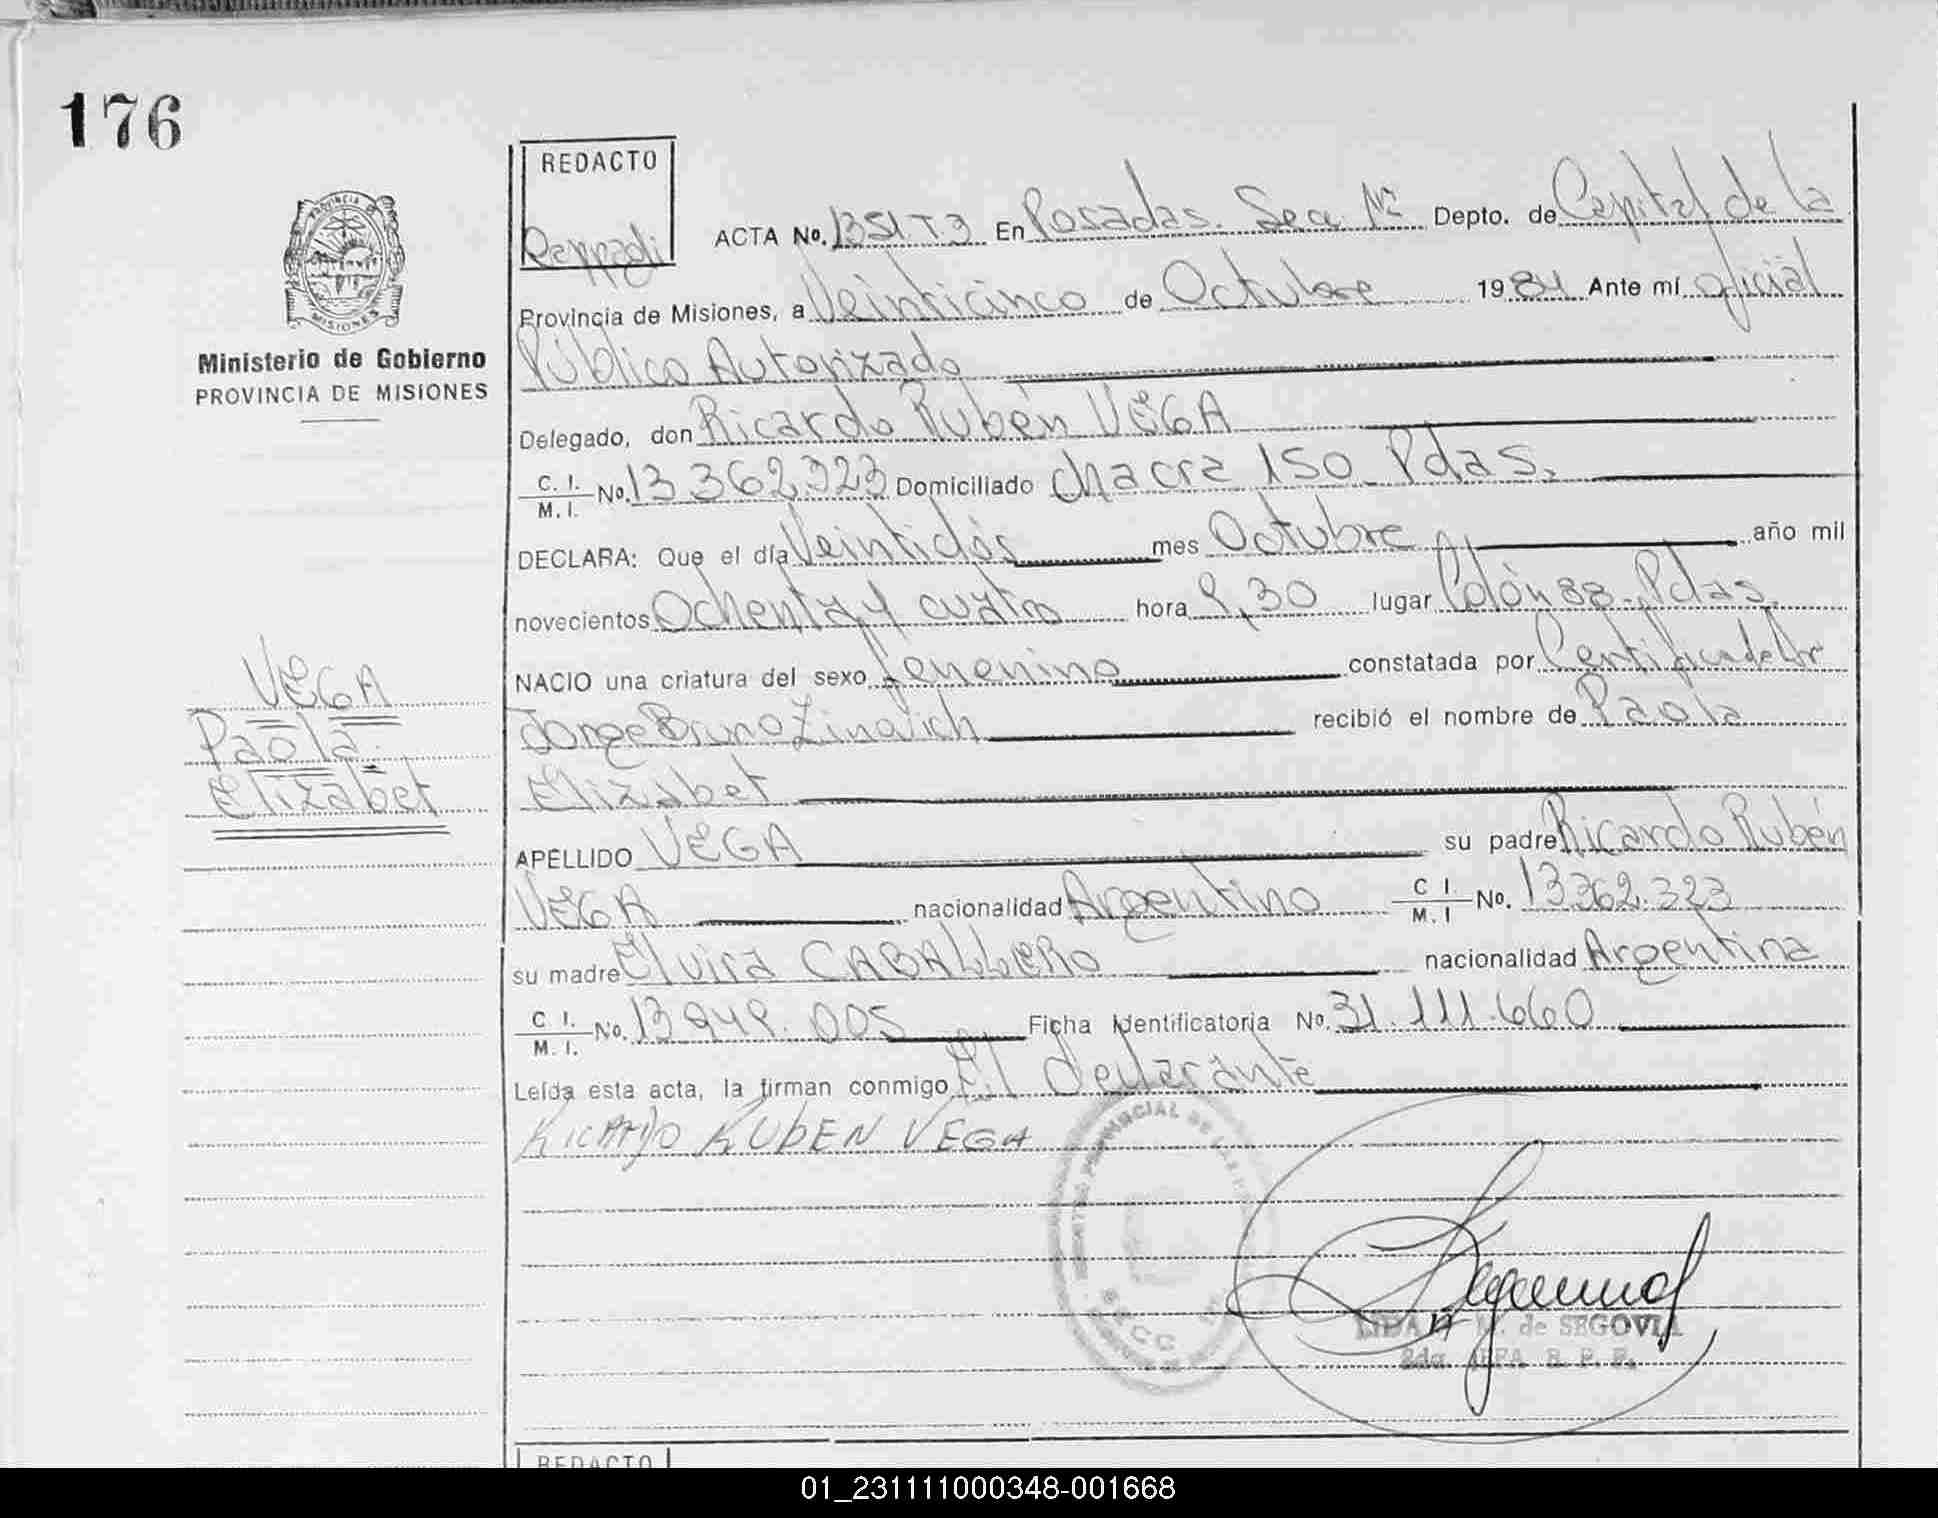 176
REDACTO
PROVINCIA DE
MISIONES
Ministerio de Gobierno
PROVINCIA DE MISIONES
ACTA No. 1351 T3 En Posadas. Secc. Nº Depto. de Capital de la
Provincia de Misiones, a Veinticinco de Octubre 1984 Ante mí oficial
Público Autorizado
Delegado, don Ricardo Rubén VEGA
C. I. M. I. No. 13 362.323 Domiciliado chacra 150 Pdas.
DECLARA: Que el día Veintidós mes Octubre año mil
novecientos Ochenta y cuatro hora 9,30 lugar Colón 88 - Pdas.
NACIO una criatura del sexo femenino constatada por
Jorge Bruno Zinovich recibió el nombre de Paola
Elizabet
APELLIDO VEGA su padre Ricardo Rubén
VEGA nacionalidad Argentino C I. M. I No. 13 362.323
su madre Elvira CABALLERO nacionalidad Argentina
C I. M. I. No. 13 949.005 Ficha Identificatoria No. 31.111.660
Leída esta acta, la firman conmigo El declarante
RICARDO RUBEN VEGA
VEGA
Paola
Elizabet
PROVINCIAL DE
SECC
de SEGOVIA
2da JEFA R. P. P.
REDACTO
01_231111000348-001668